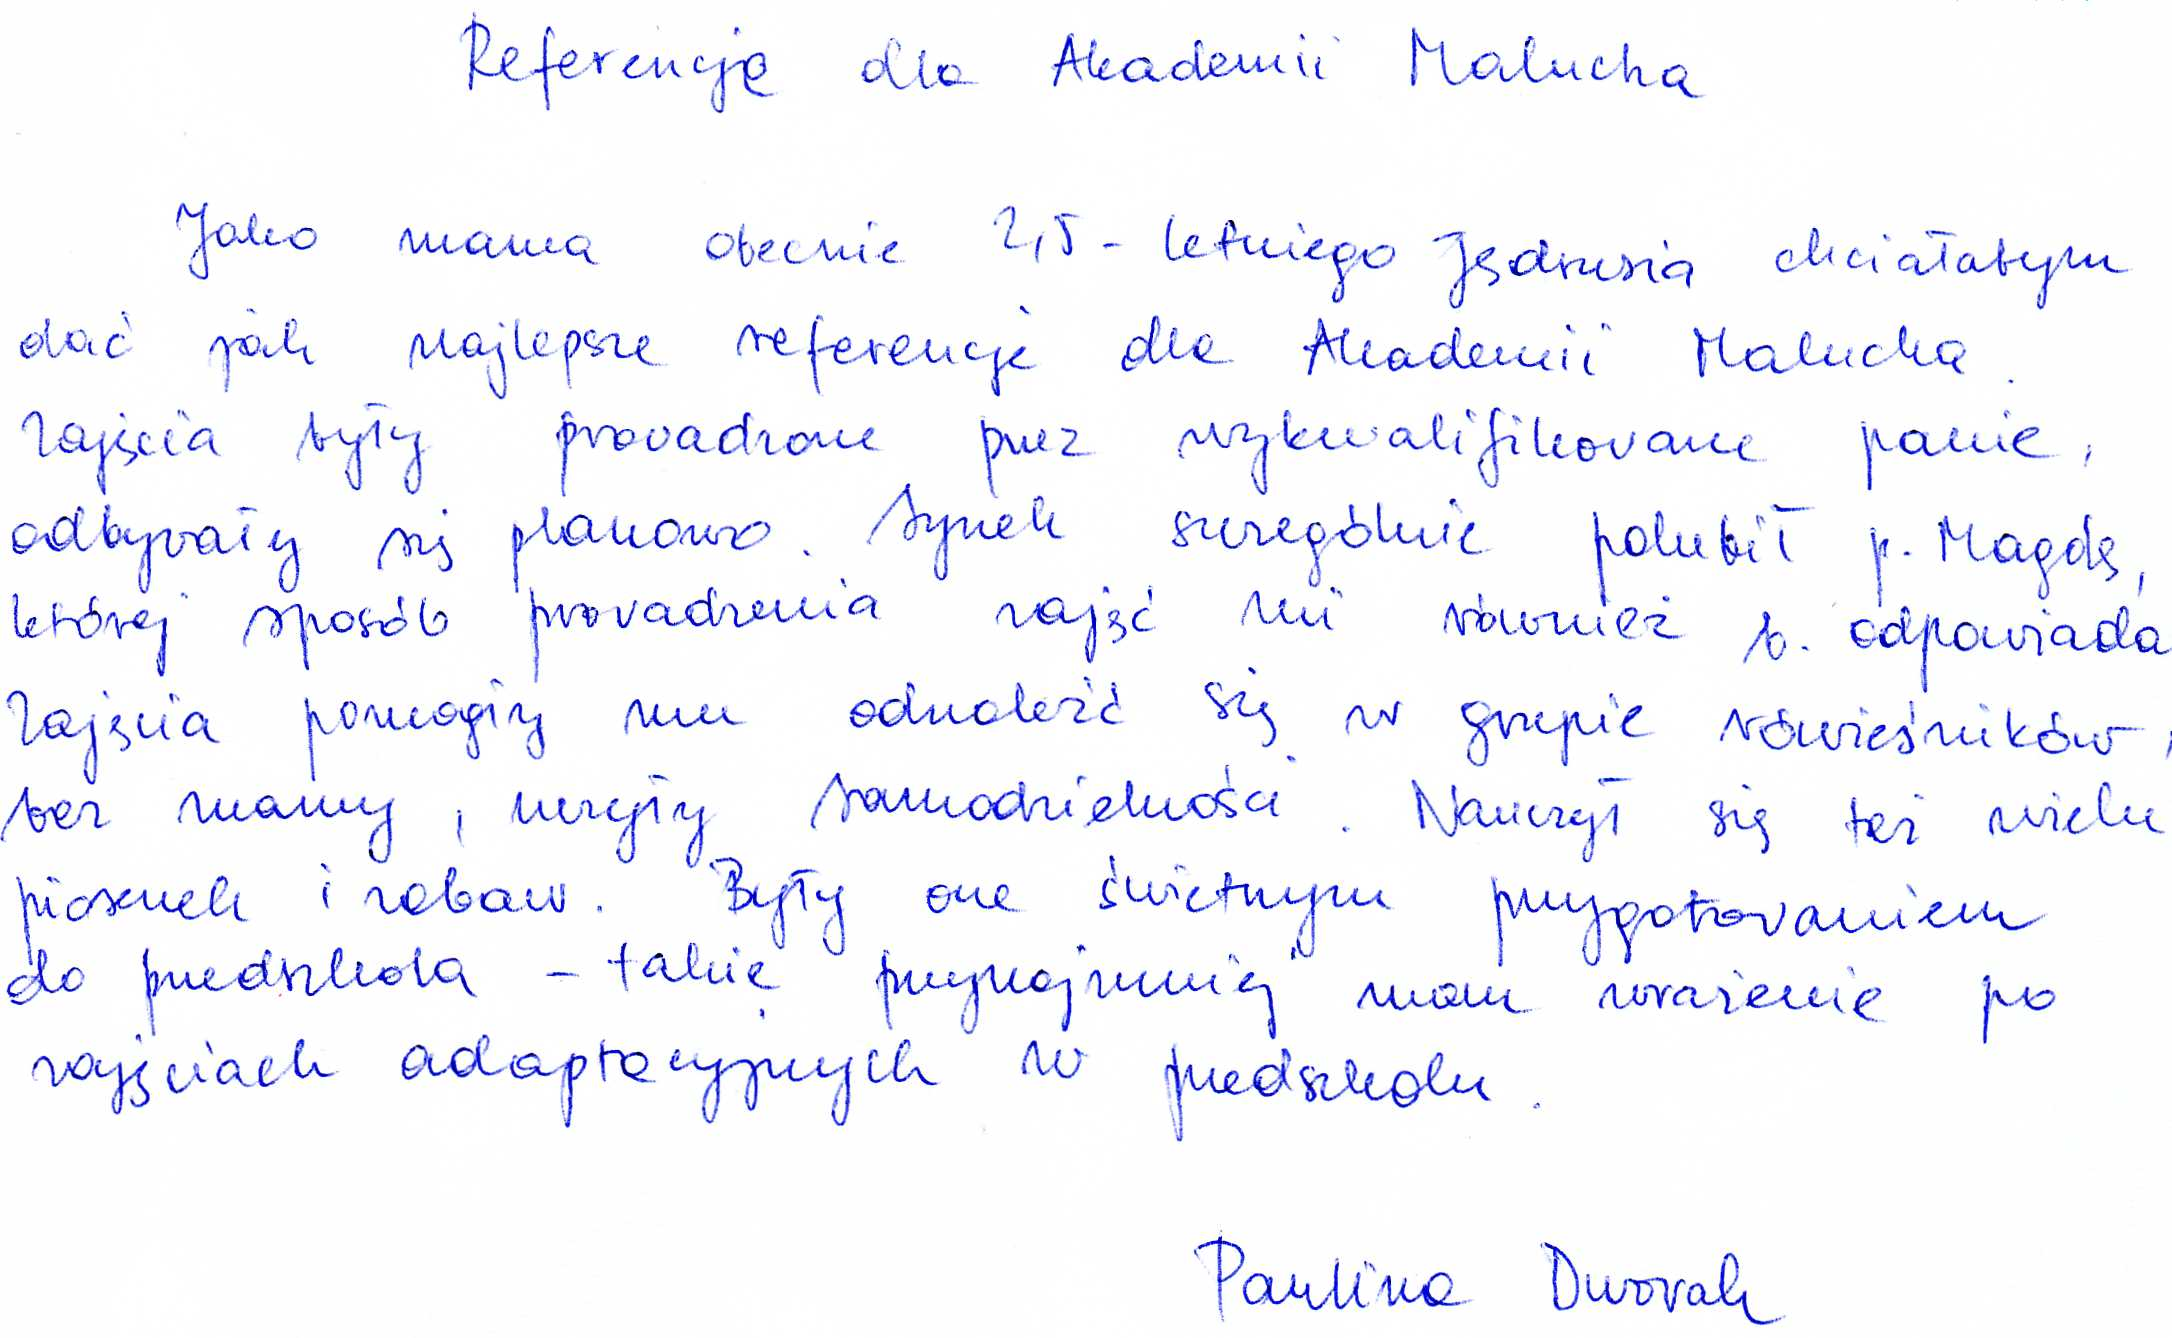 Referencję dla Akademii Malucha
Jako mama obecnie 2,5-letniego Jędrusia chciałabym
dać jak najlepsze referencje dla Akademii Malucha.
Zajęcia były prowadzone przez wykwalifikowane panie,
odbywały się planowo. Synek szczególnie polubił p. Magdę,
której sposób prowadzenia zajęć mi również b. odpowiada
Zajęcia pomogły mu odnaleźć się w grupie rówieśników,
bez mamy, uczyły samodzielności. Nauczył się też wielu
piosenek i zabaw. Były one świetnym przygotowaniem
do przedszkola - takie przynajmniej mam wrażenie po
zajęciach adaptacyjnych w przedszkolu.
Paulina Dworak